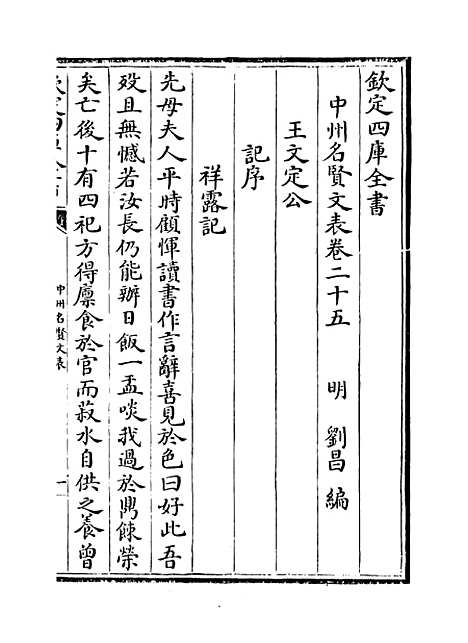 欽定四庫全書
中州名賢文表卷二十五 明 劉昌 編
王文定公
記序
祥露記
先母夫人平時顧惲讀書作言辭喜見於色曰好此吾
歿且無憾若汝長仍能辦日飯一盂啖我過於鼎餗榮
矣亡後十有四祀方得廪食於官而菽水自供之養曾
中州名賢文表
一